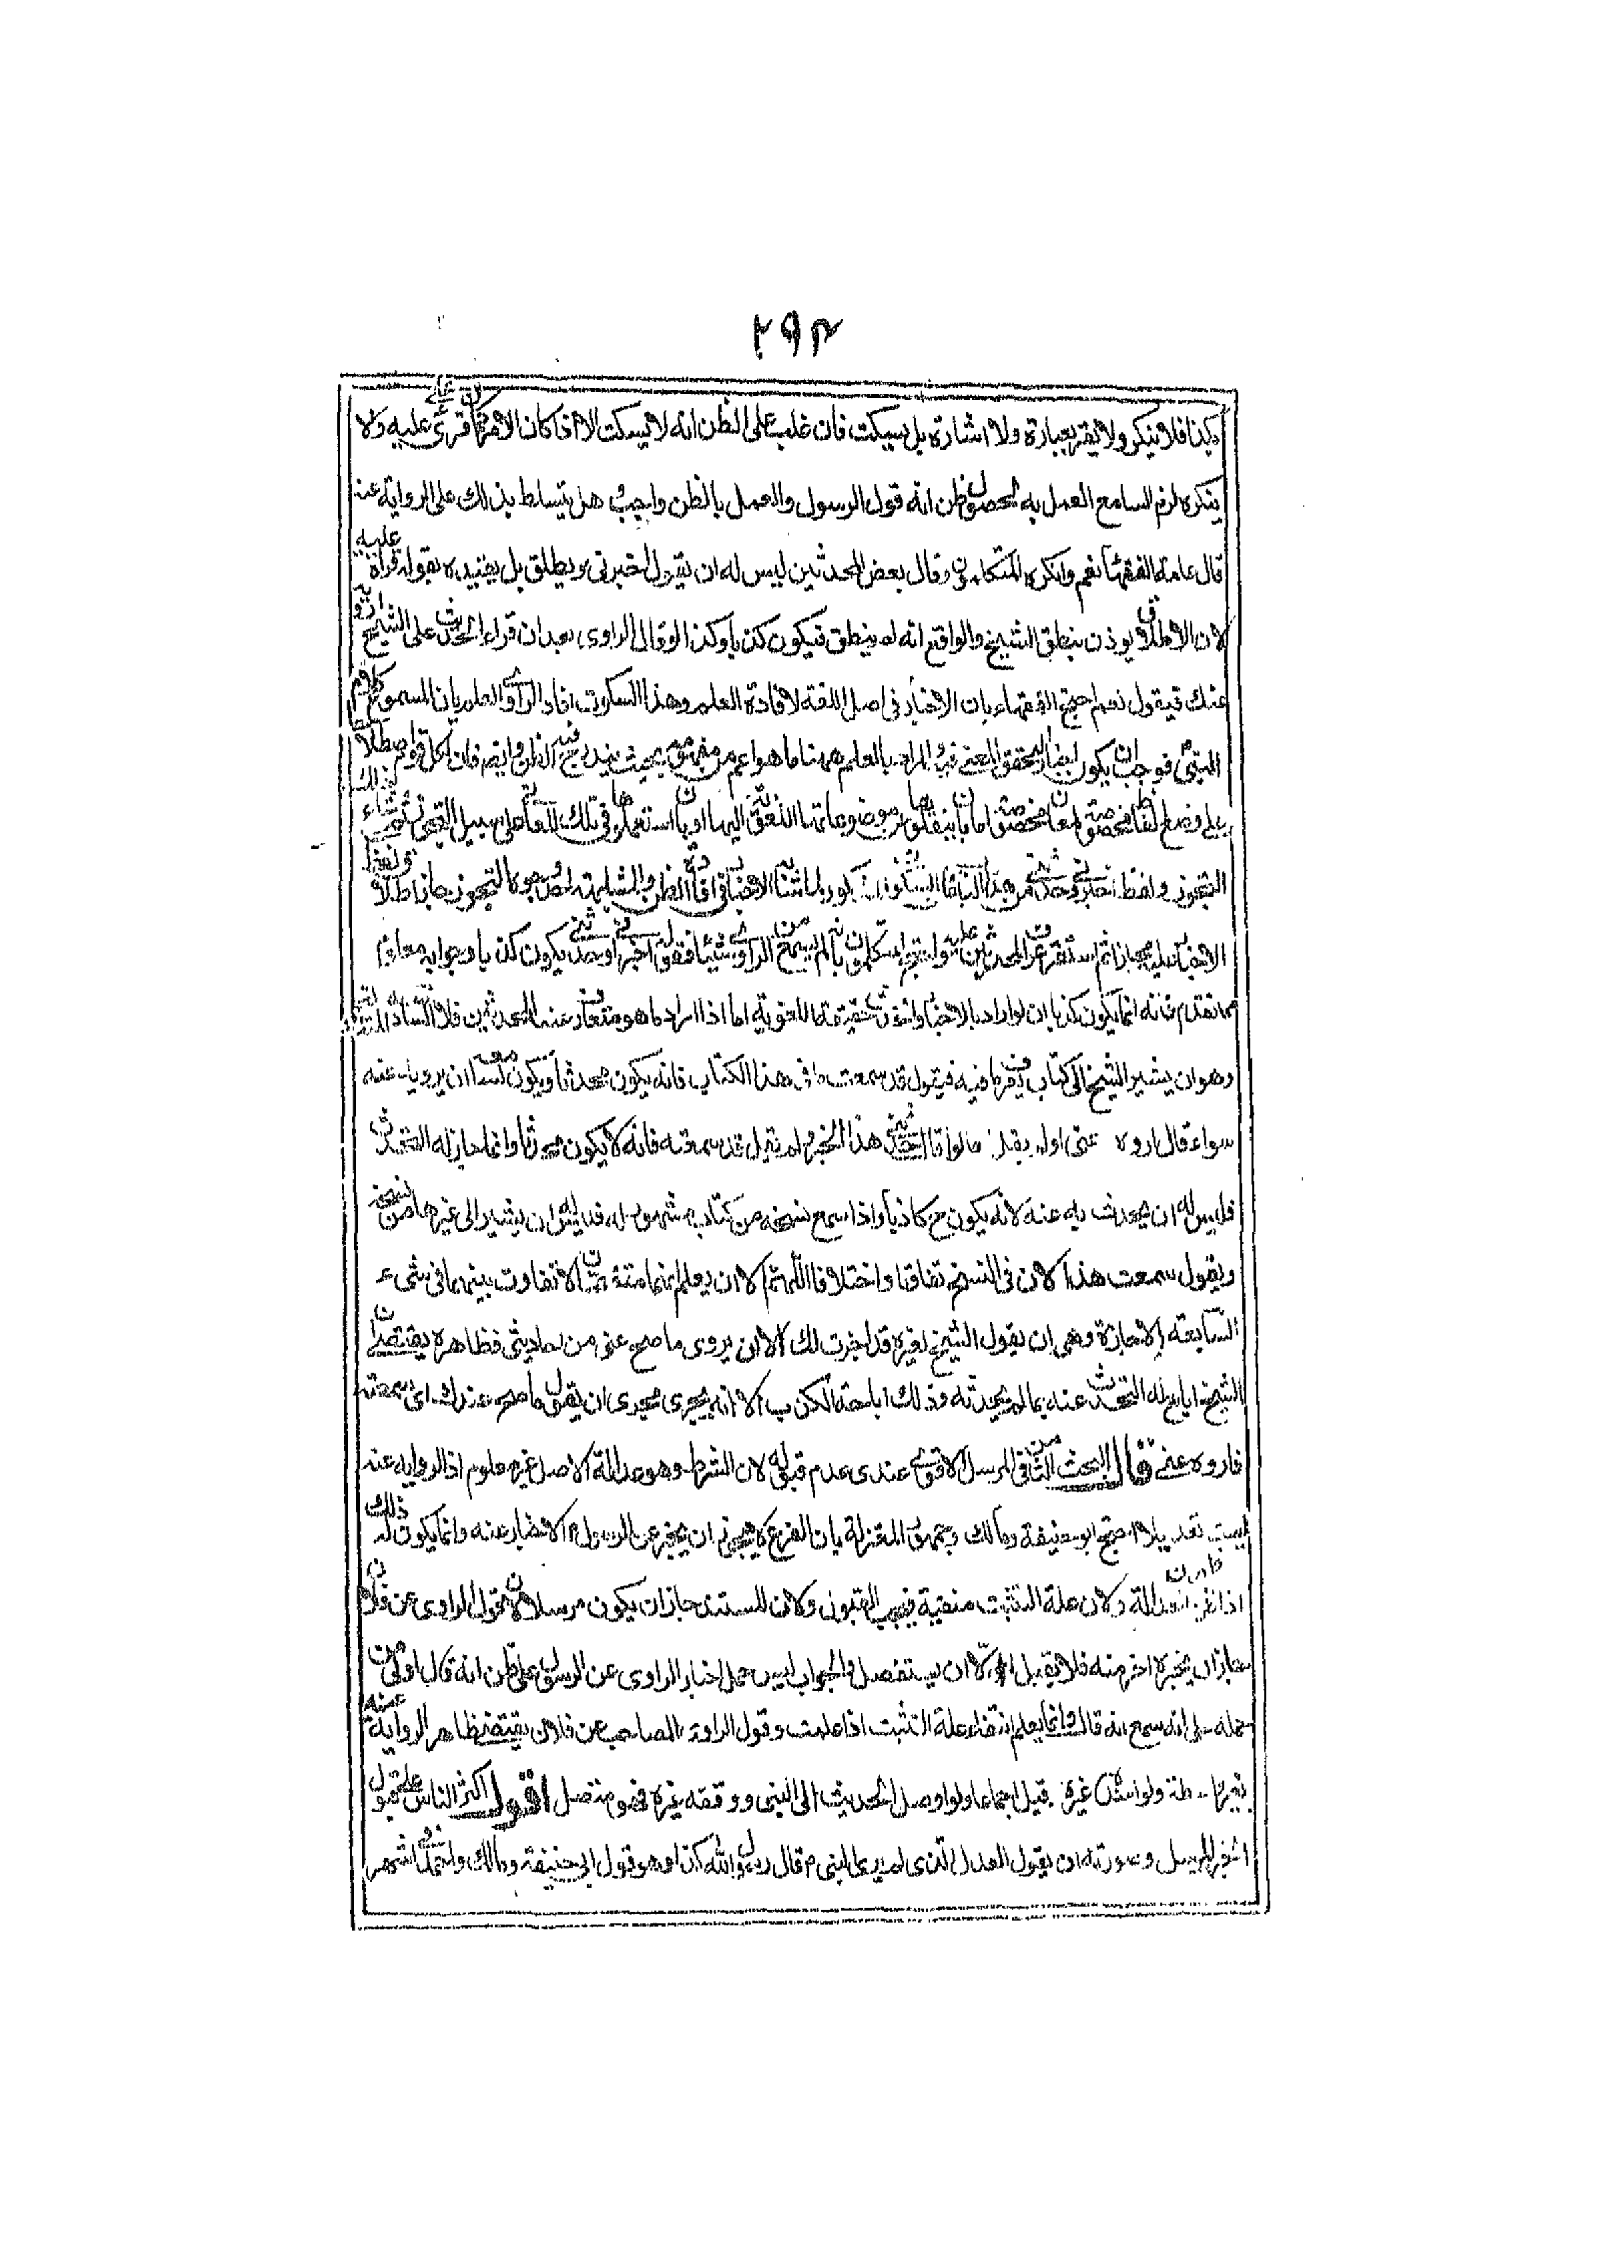 ٢٩٣
كذا فلا ينكر ولا يقر بعبارة ولا اشارة بل يسكت فان غلب على الظن انه لا يسكت الا اذا كان الامر كما قرئ عليه ولا
ينكره لزم السامع العمل به لحصول ظن انه قول الرسول والعمل بالظن واجب وهل يتسلط بذلك على الرواية عنه
قال عامة الفقهاء نعم وانكره المتكلمون وقال بعض المحدثين ليس له ان يقول اخبرنى ويطلق بل يقيده بقوله قراءة عليه
لان الاطلاق يوذن بنطق الشيخ والواقع انه لم ينطق فيكون كذبا وكذا لو قال الراوى بعد ان قراء الحديث على الشيخ ارويه
عنك فيقول نعم احتج الفقهاء بان الاخبار فى اصل اللغة لافادة العلم وهذا السكوت افاد الراوى العلم بان المسموع كلام
النبى فوجب ان يكون اخبارا لتحقق المعنى فيه المراد بالعلم ههنا ما هو اعم من بحيث يندرج فيه الظن وايضا فان لكل قوم اصطلاحا
على وضع الفاظ مخصوصة لمعان مخصوصة اما بان ينقلوها من موضوعاتها اللغوية اليها او بان استعملوها فى تلك المعانى على سبيل التجوز
التجوز ولفظ اخبرنى وحدثنى من هذا الباب لمشابهة الاخبار فى افادة الظن والمشابهة احد وجوه التجوز جاز اطلاق
الاخبار عليه مجازا ثم استقر عرف المحدثين عليه احتج المتكلمون بانه لم يسمع من الراوى شيئا فقوله اخبرنى او حدثنى يكون كذبا وجوابه معلوم
مما تقدم فانه انما يكون كذبا ان لو اراد بالاخبار والتحديث حقيقتهما اللغوية اما اذا اراد ما هو متعارف عند المحدثين فلا السادسة
وهو ان يشير الشيخ الى كتاب يعرف ما فيه فيقول قد سمعت ما فى هذا الكتاب فانه يكون محدثا ويكون لسامعه ان يرويه عنه
سواء قال اروه عنى او لم يقل اما لو قال حدث عنى هذا الخبر ولم يقل قد سمعته فانه لا يكون محدثا وانما اجاز له التحدث
فليس له ان يحدث به عنه لانه يكون كاذبا واذا سمع نسخة من كتاب مشهور له فليس له ان يشير الى غيرها من نسخه
ويقول سمعت هذا لان فى النسخ تفاوتا واختلافا اللهم الا ان يعلم انهما متفقتان لا تفاوت بينهما فى شىء
السابعة الاجازة وهى ان يقول الشيخ لغيره قد اجزت لك ان يروى ما صح عنى من احاديثى فظاهره يقتضى ان
الشيخ اباح له التحدث عنه بما لم يحدثه وذلك اباحة الكذب الا انه يجرى مجرى ان يقول ما صح عندك انى سمعته
فاروه عنى قال البحث الثامن فى المرسل الاقوى عندى عدم قبوله لان الشرط وهو عدالة الاصل غير معلوم اذ الرواية عنه
ليست تعديلا احتج ابو حنيفة ومالك وجمهور المعتزلة بان الفرع لا يجوز ان يخبر عن الرسول م الا اخبار عنه وانما يكون له ذلك
اذا ظن العدالة ولان علة التثبت منفية فيجب القبول ولان المسند جاز ان يكون مرسلا لان قول الراوى عن فلان
جاز ان يخبره اخر منه فلا يقبل الا ان يستفصل والجواب ليس حمل اخبار الراوى عن الرسول على ظن انه قال اولى من
حمله على انه سمع انه قال وانما يعلم انتفاء علة التثبت اذا علمت وقول الراوى المصاحب عن فلان يقتضى ظاهر الرواية عنه
بغير واسطة ولو اسنده غيره قبل اجماعا ولو اوصل الحديث الى النبى ووقفه غيره فهو متصل اقول اكثر الناس على قبول
الخبر المرسل وصورته ان يقول العدل الذى لم ير النبى م قال رسول الله كذا وهو قول ابى حنيفة ومالك واشهر